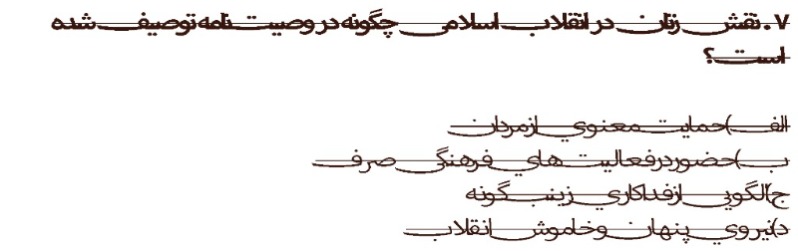 ۷. نقش زنان در انقلاب اسلامی چگونه در وصیت‌نامه توصیف شده
است؟
الف) حمایت معنوی از مردان
ب) حضور در فعالیت‌های فرهنگی صرف
ج) الگویی از فداکاری زینب‌گونه
د) نیروی پنهان و خاموش انقلاب